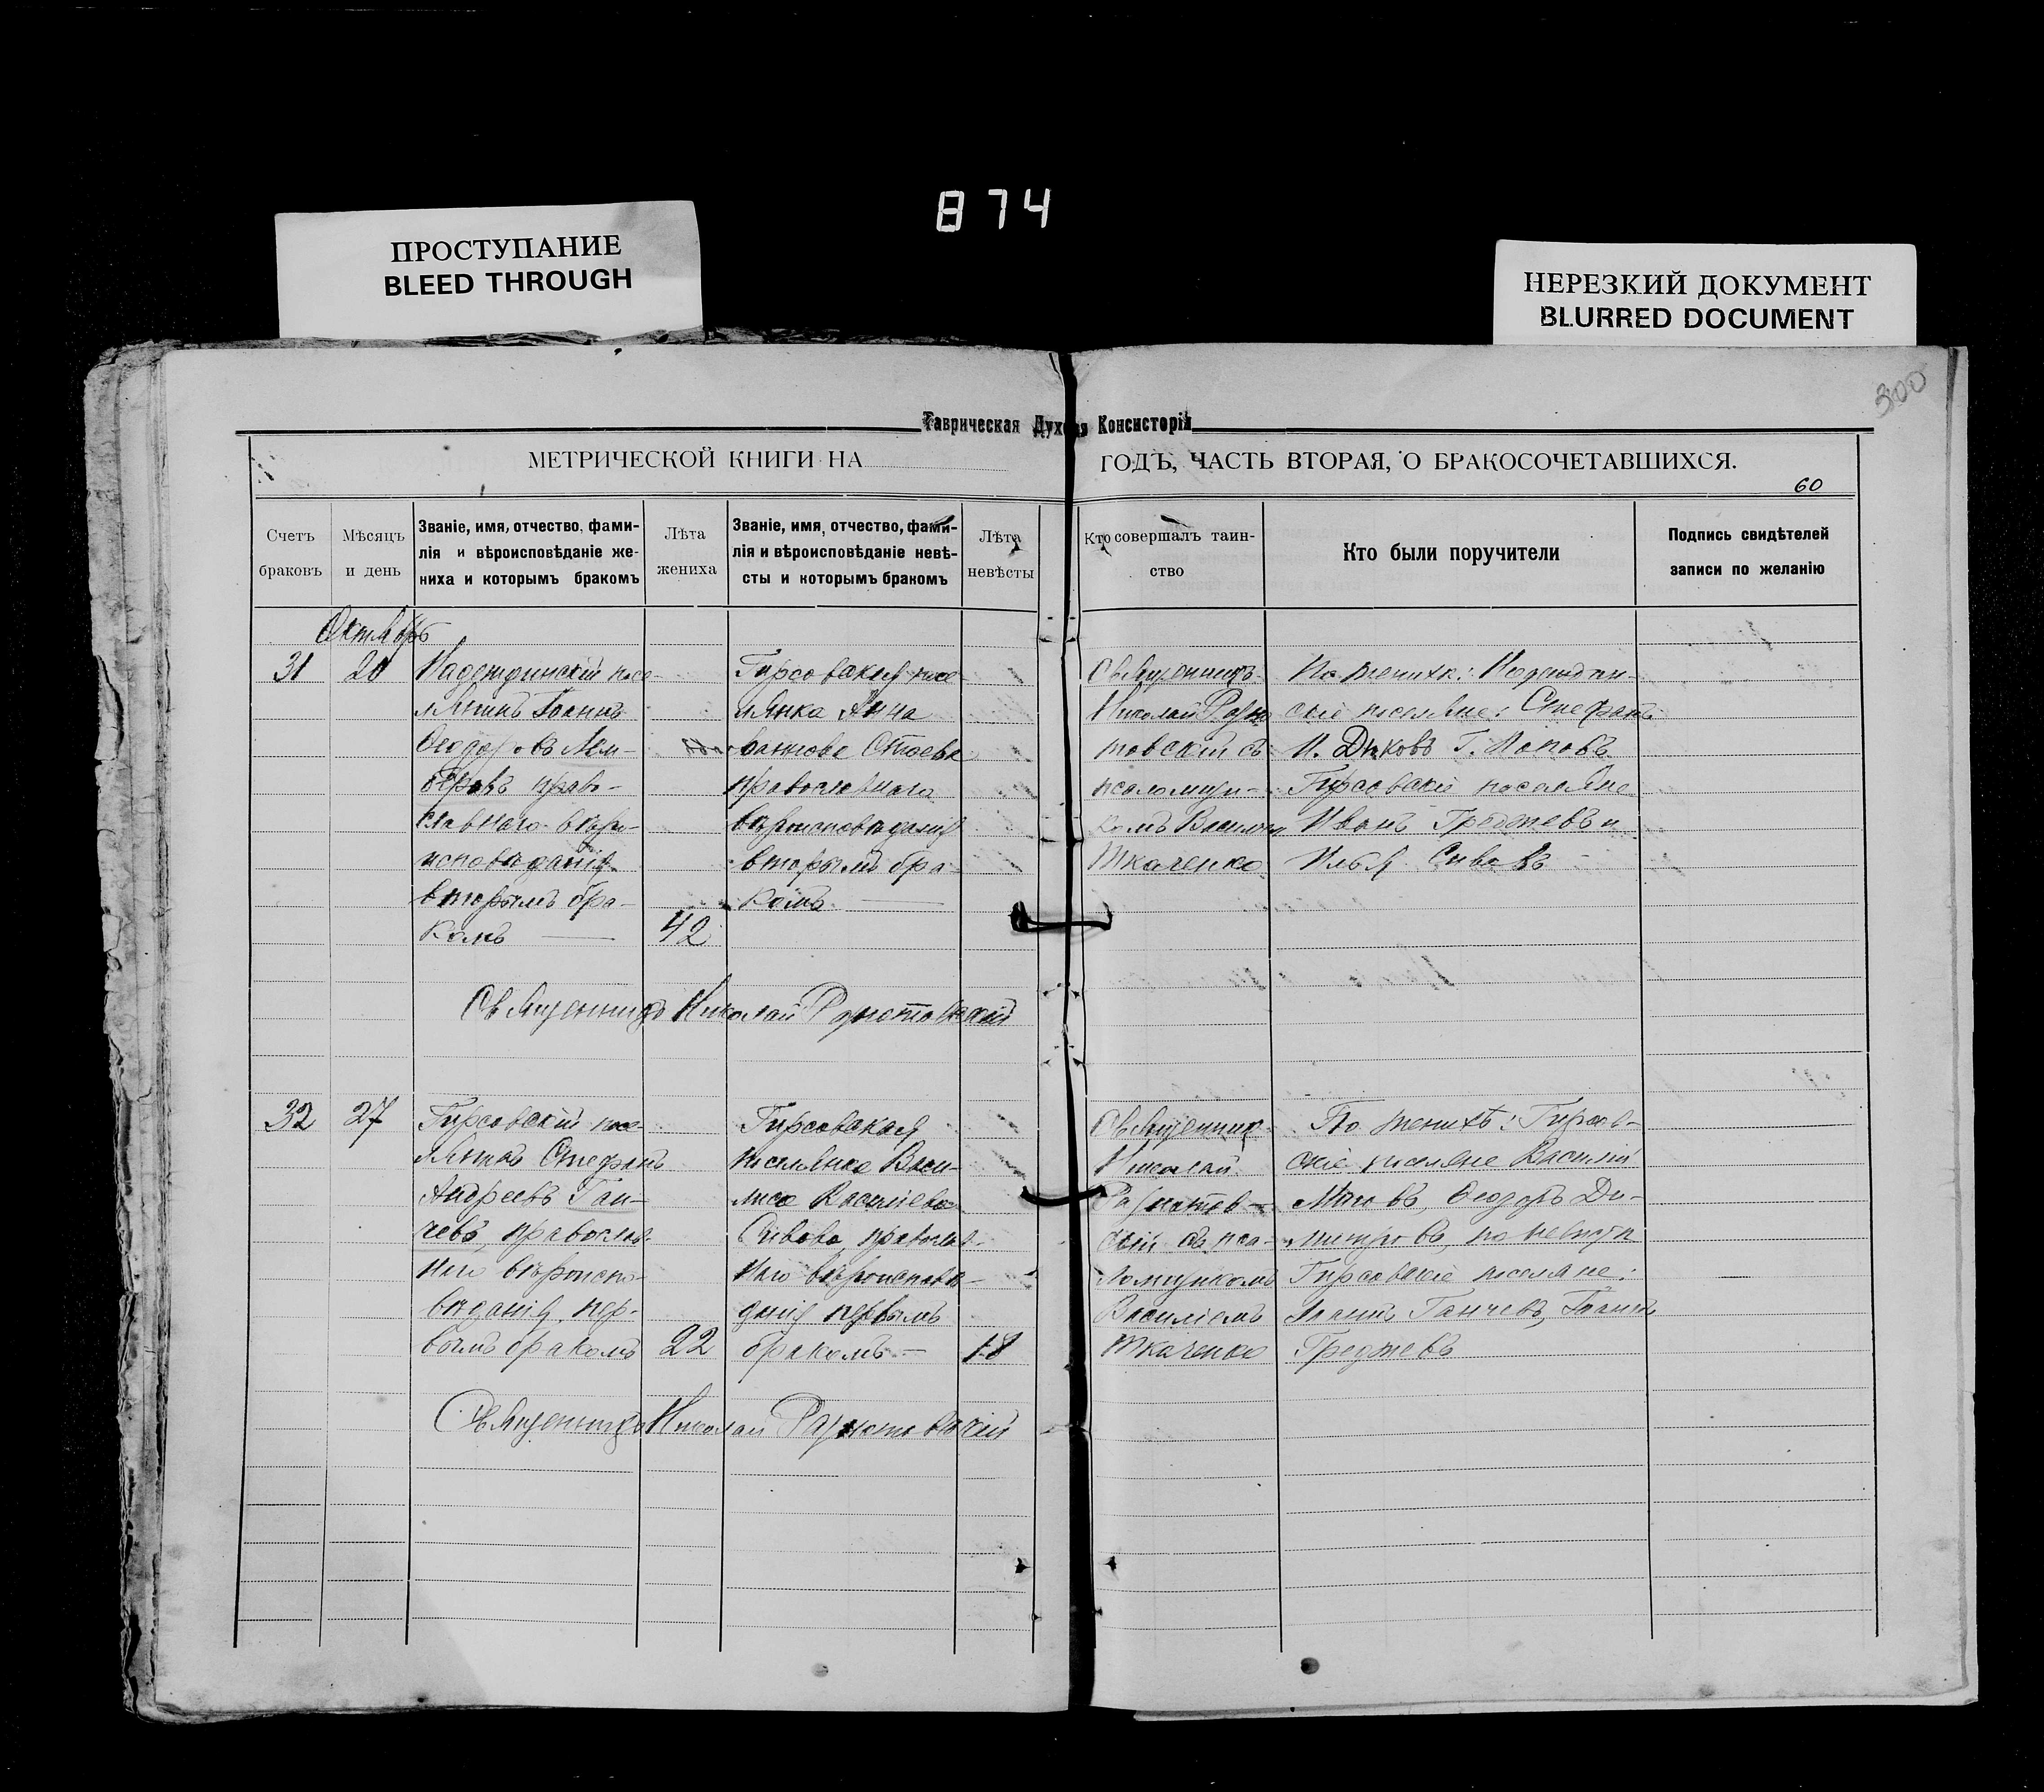 874
ПРОСТУПАНИЕ
BLEED THROUGH
НЕРЕЗКИЙ ДОКУМЕНТ
BLURRED DOCUMENT
300
Таврическая Духо я Консисторія
МЕТРИЧЕСКОЙ КНИГИ НА
ГОДЪ, ЧАСТЬ ВТОРАЯ, О БРАКОСОЧЕТАВШИХСЯ.
60
Счетъ
браковъ
Мѣсяцъ
и день
Званіе, имя, отчество, фами-
лія и вѣроисповѣданіе же-
ниха и которымъ бракомъ
Лѣта
жениха
Званіе, имя, отчество, фами-
лія и вѣроисповѣданіе невѣ-
сты и которымъ бракомъ
Лѣта
невѣсты
Кто совершалъ таин-
ство
Кто были поручители
Подпись свидѣтелей
записи по желанію
Октябрь
31
20
посе-
лянинъ Іоаннъ
Ѳеодоровъ
православ-
славнаго вѣро-
исповѣданія
вторымъ бра-
комъ
42
Гирсовская посе-
лянка Анна
Стоева
православнаго
вѣроисповѣданія
вторымъ бра-
комъ
Священникъ
Николай Разно-
товскій съ
псаломщи-
комъ Василіем
Ткаченко
По женихѣ:
скіе поселяне: Стефанъ
И. Дяковъ Г. Поповъ
Гирсовскіе поселяне
Иванъ Греджевъ и
Илья Сивовъ
Священникъ Николай Разнотовскій
32
27
Гирсовскій посе-
лянинъ Стефанъ
Андреевъ Ган-
чевъ, православ-
наго вѣроиспо-
вѣданія, пер-
вымъ бракомъ
22
Гирсовская
поселянка Васи-
лиса Василіева
Сивова, православ-
наго вѣроисповѣ-
данія первымъ
бракомъ
18
Священник
Николай
Разнотов-
скій съ пса-
ломщикомъ
Василіемъ
Ткаченко
По женихѣ: Гирсов-
скіе поселяне Василій
Ѳеодоръ Ди-
митровъ, по невѣстѣ
Гирсовскіе поселяне:
Іоаннъ Ганчевъ, Іоаннъ
Греджевъ
Священникъ Николай Разнотовскій